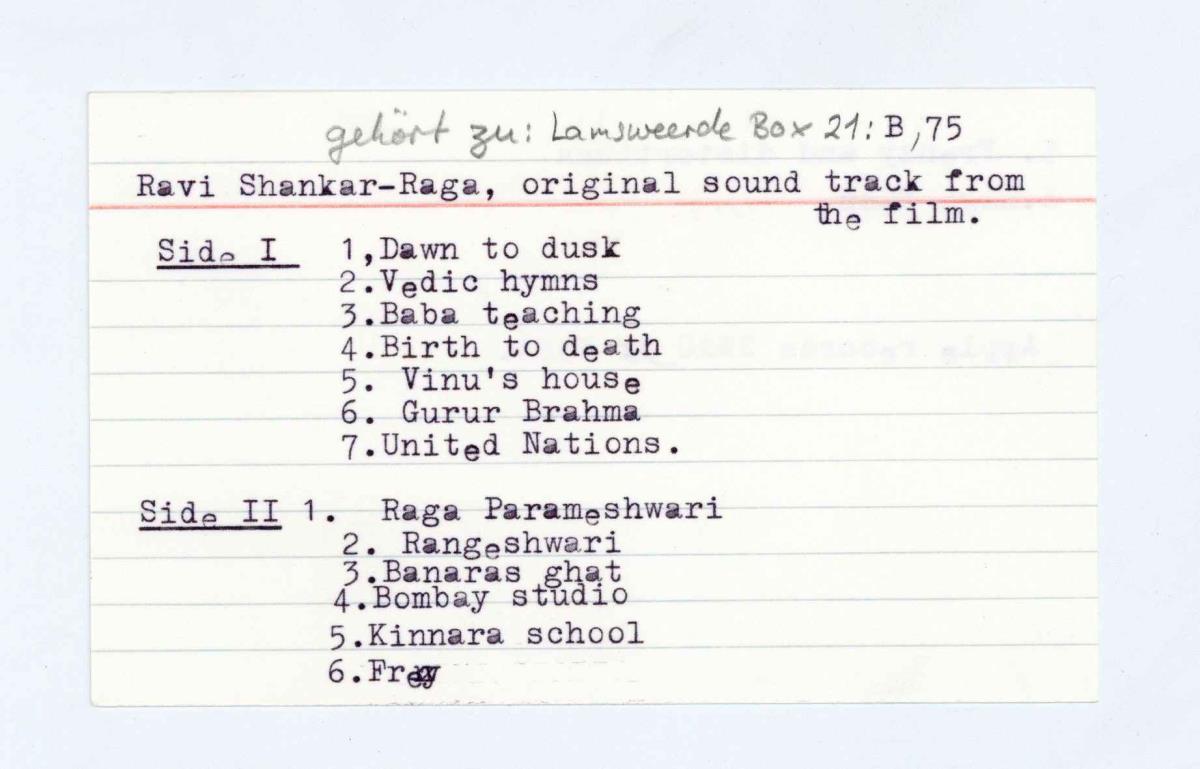 gehört zu: Lamsweerde Box 21: B,75
Ravi Shankar-Raga, original sound track from
the film.
Side I 1,Dawn to dusk
2.Vedic hymns
3.Baba teaching
4.Birth to death
5. Vinu's house
6. Gurur Brahma
7.United Nations.
Side II 1. Raga Parameshwari
2. Rangeshwari
3.Banaras ghat
4.Bombay studio
5.Kinnara school
6.